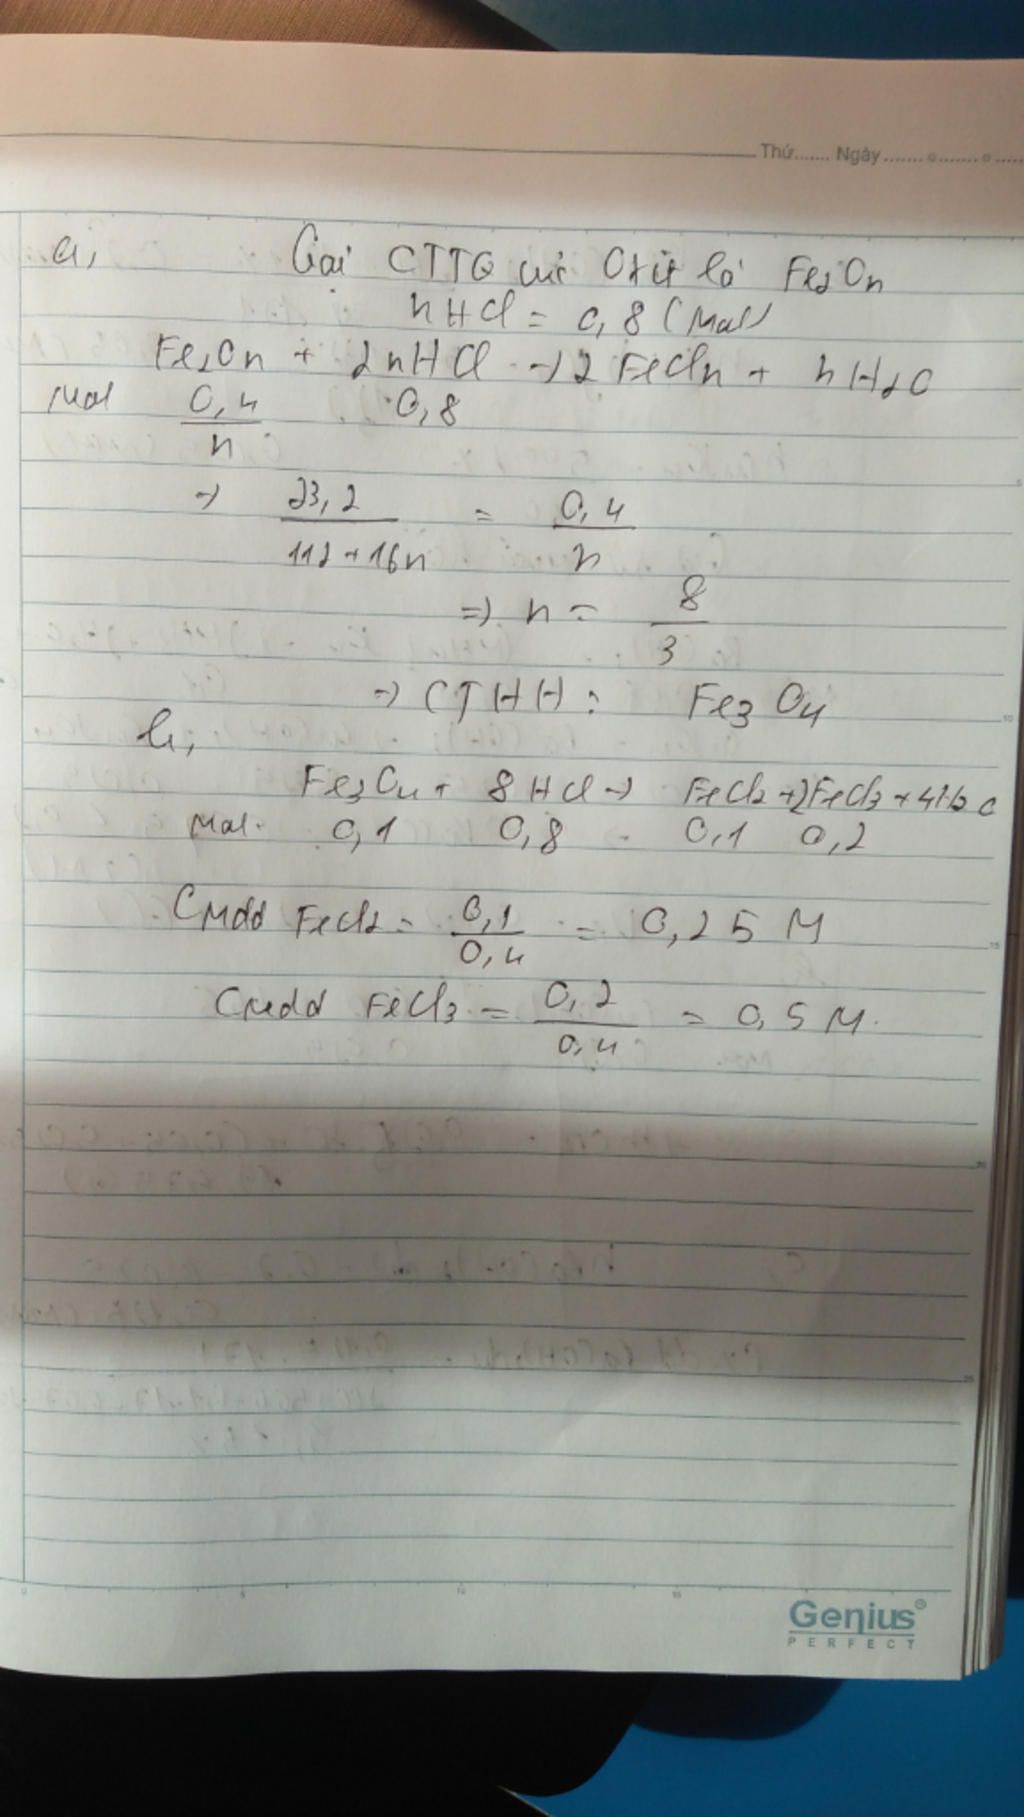 Thứ....... Ngày ....... o ....... o .....
a, Gọi CTTQ của Oxit là Fe2On
nHCl = 0,8 (mol)
Fe2On + 2nHCl → 2FeCln + nH2O
Mol 0,4/n 0,8
→ 23,2/(112+16n) = 0,4/n
=> n = 8/3
=> CTHH : Fe3O4
b,
Fe3O4 + 8HCl → FeCl2 + 2FeCl3 + 4H2O
Mol. 0,1 0,8 0,1 0,2
CMdd FeCl2 = 0,1/0,4 = 0,25 M
CMdd FeCl3 = 0,2/0,4 = 0,5 M.
Genius
PERFECT